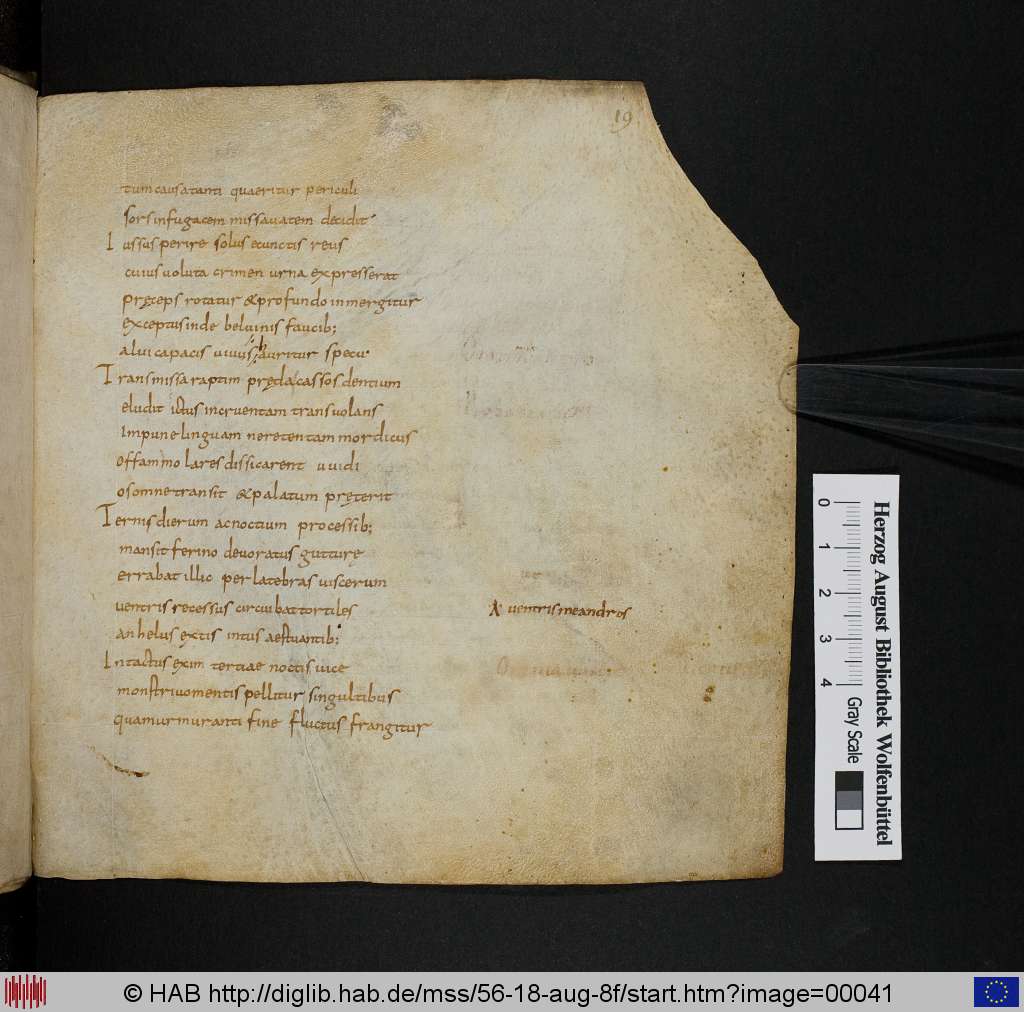 19
tum causa tanti quaeritur periculi
sors in fugacem missa vatem decidit
Iussus perire solus e cunctis reus
cuius voluta crimen urna expresserat
pręceps rotatur & profundo inmergitur
exceptus inde beluinis faucib;
alvi capacis vivus hauritur specu
Transmissa raptim pręda cassos dentium
eludit ictus incruentam transvolans
impune linguam ne retentam mordicus
offam molares dissicarent uvidi
os omne transit & palatum pręterit
Ternis dierum ac noctium processib;
mansit ferino devoratus gutture
errabat illic per latebras viscerum
ventris recessus circuibat tortiles
ventris meandros
anhelus extis intus aestuantib;
Intactus exim tertiae noctis vice
monstri vomentis pellitur singultibus
qua murmuranti fine fluctus frangitur
0 1 2 3 4 Gray Scale
Herzog August Bibliothek Wolfenbüttel
© HAB http://diglib.hab.de/mss/56-18-aug-8f/start.htm?image=00041